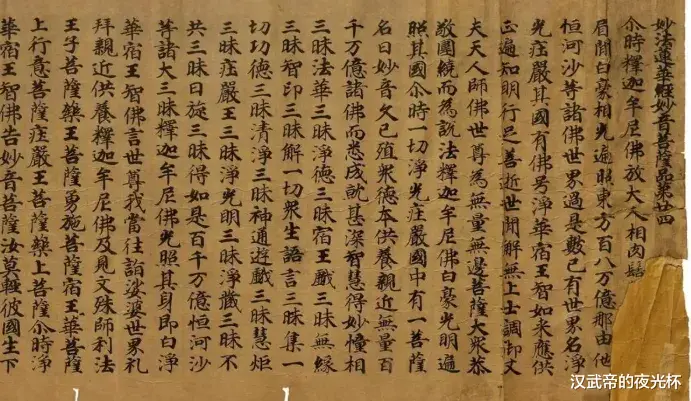 妙法蓮華經妙音菩薩品第廿四
尒時釋迦牟尼佛放大人相肉髻
眉間白豪相光遍照東方百八万億那由他
恒河沙等諸佛世界過是數已有世界名淨
光莊嚴其國有佛号淨華宿王智如來應供
正遍知明行足善逝世間解無上士調御丈
夫天人師佛世尊為無量無邊菩薩大衆恭
敬圍繞而為說法釋迦牟尼佛白豪光明遍
照其國尒時一切淨光莊嚴國中有一菩薩
名曰妙音久已殖衆德本供養親近無量百
千万億諸佛而悉成就甚深智慧得妙幢相
三昧法華三昧淨德三昧宿王戲三昧無緣
三昧智印三昧解一切衆生語言三昧集一
切功德三昧清淨三昧神通遊戲三昧慧炬
三昧莊嚴王三昧淨光明三昧淨藏三昧不
共三昧日旋三昧得如是百千万億恒河沙
等諸大三昧釋迦牟尼佛光照其身即白淨
華宿王智佛言世尊我當往詣娑婆世界礼
拜親近供養釋迦牟尼佛及見文殊師利法
王子菩薩藥王菩薩勇施菩薩宿王華菩薩
上行意菩薩莊嚴王菩薩藥上菩薩尒時淨
華宿王智佛告妙音菩薩汝莫輕彼國生下
汉武帝的夜光杯